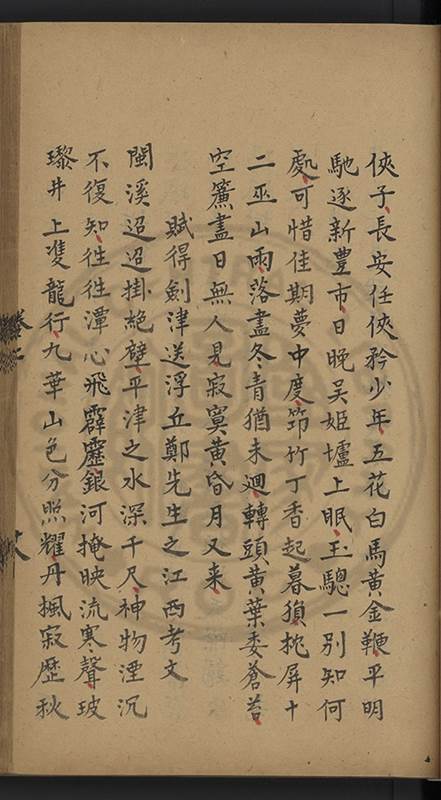 俠子長安任俠矜少年五花白馬黃金鞭平明
馳逐新豐市日晚吳姬壚上眠玉驄一別知何
處可惜佳期夢中度笻竹丁香起暮猿枕屏十
二巫山雨落盡冬青猶未迴轉頭黃葉委蒼苔
空簾盡日無人見寂寞黃昏月又来
賦得劍津送浮丘鄭先生之江西考文
閩溪迢迢掛絶壁平津之水深千尺神物湮沉
不復知往往潭心飛霹靂銀河掩映流寒聲玻
瓈井上䨇龍行九華山色分照耀丹楓寂歴秋